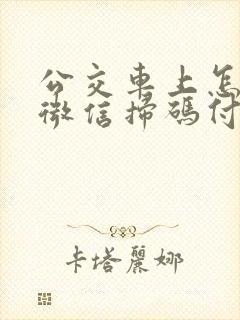 公交車上怎
微信掃碼付
卡塔麗娜